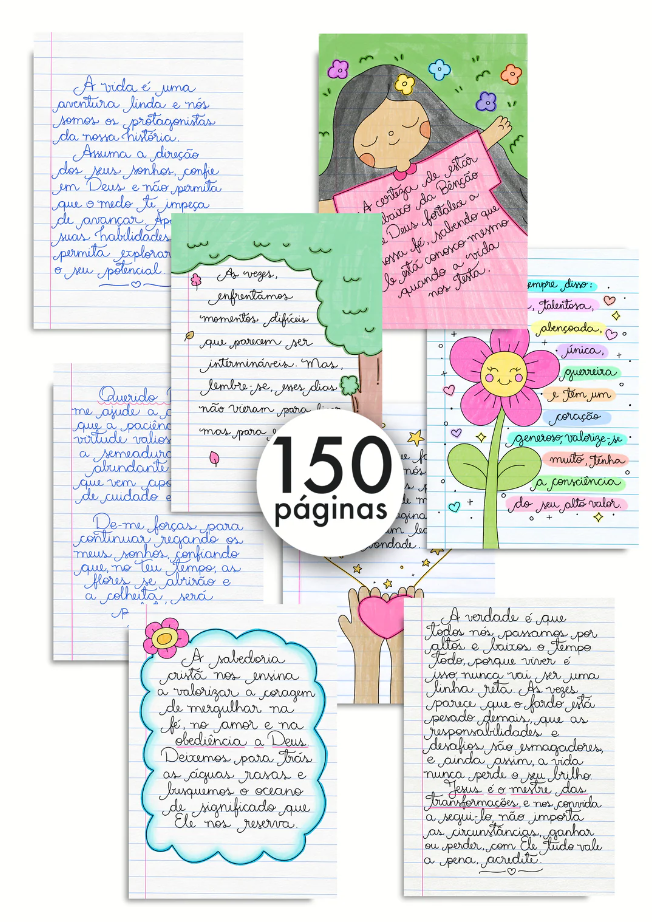 A vida é uma
aventura linda e nós
somos os protagonistas
da nossa história.
Assuma a direção
dos seus sonhos, confie
em Deus e não permita
que o medo te impeça
de avançar.
suas habilidades
permita explorar
o seu potencial.
A certeza de estar
debaixo da Bênção
de Deus fortalece a
nossa fé, sabendo que
Ele está conosco mesmo
quando a vida
nos testa.
As vezes,
enfrentamos
momentos difíceis
que parecem ser
intermináveis. Mas,
lembre-se, esses dias
não vieram para
mas para
disso:
talentosa,
abençoada,
única,
guerreira
e tem um
coração
generoso, valorize-se
muito, tenha
a consciência
do seu alto valor.
Querido
me ajude a
que a paciência
virtude
a semeadura
abundante
que vem
de cuidado e
Dê-me forças para
continuar regando os
meus sonhos, confiando
que, no Teu tempo, as
flores se abrirão e
a colheita, será
150
páginas
A sabedoria
cristã nos ensina
a valorizar a coragem
de mergulhar na
fé, no amor e na
obediência a Deus.
Deixemos para trás
as águas rasas e
busquemos o oceano
de significado que
Ele nos reserva.
A verdade é que
todos nós, passamos por
altos e baixos o tempo
todo, porque viver é
isso, nunca vai ser uma
linha reta. As vezes,
parece que o fardo está
pesado demais, que as
responsabilidades e
desafios são esmagadores,
e ainda assim, a vida
nunca perde o seu brilho.
Jesus é o mestre das
transformações e nos convida
a segui-lo, não importa
as circunstâncias, ganhar
ou perder, com Ele tudo vale
a pena, acredite.